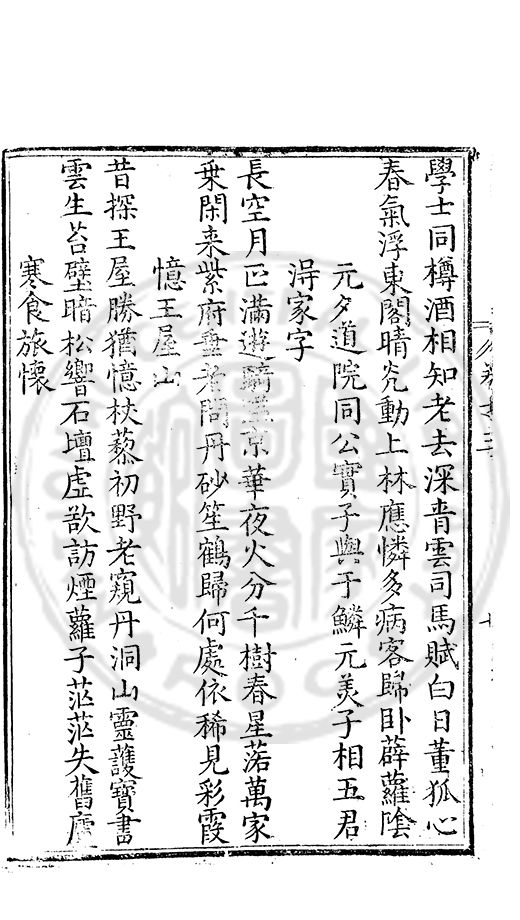 學士同樽酒相知老去深青雲司馬賦白日董狐心
春氣浮東閣晴光動上林應憐多病客歸卧薜蘿陰
元夕道院同公實子與于鱗元美子相五君
淂家字
長空月正滿遊騎京華夜火分千樹春星落萬家
乗閑来紫府重老問丹砂笙鶴歸何處依稀見彩霞
憶王屋山
昔探王屋勝猶憶杖藜初野老窺丹洞山靈護寶書
雲生苔壁暗松響石壇虛欲訪煙蘿子茫茫失舊廬
寒食旅懷